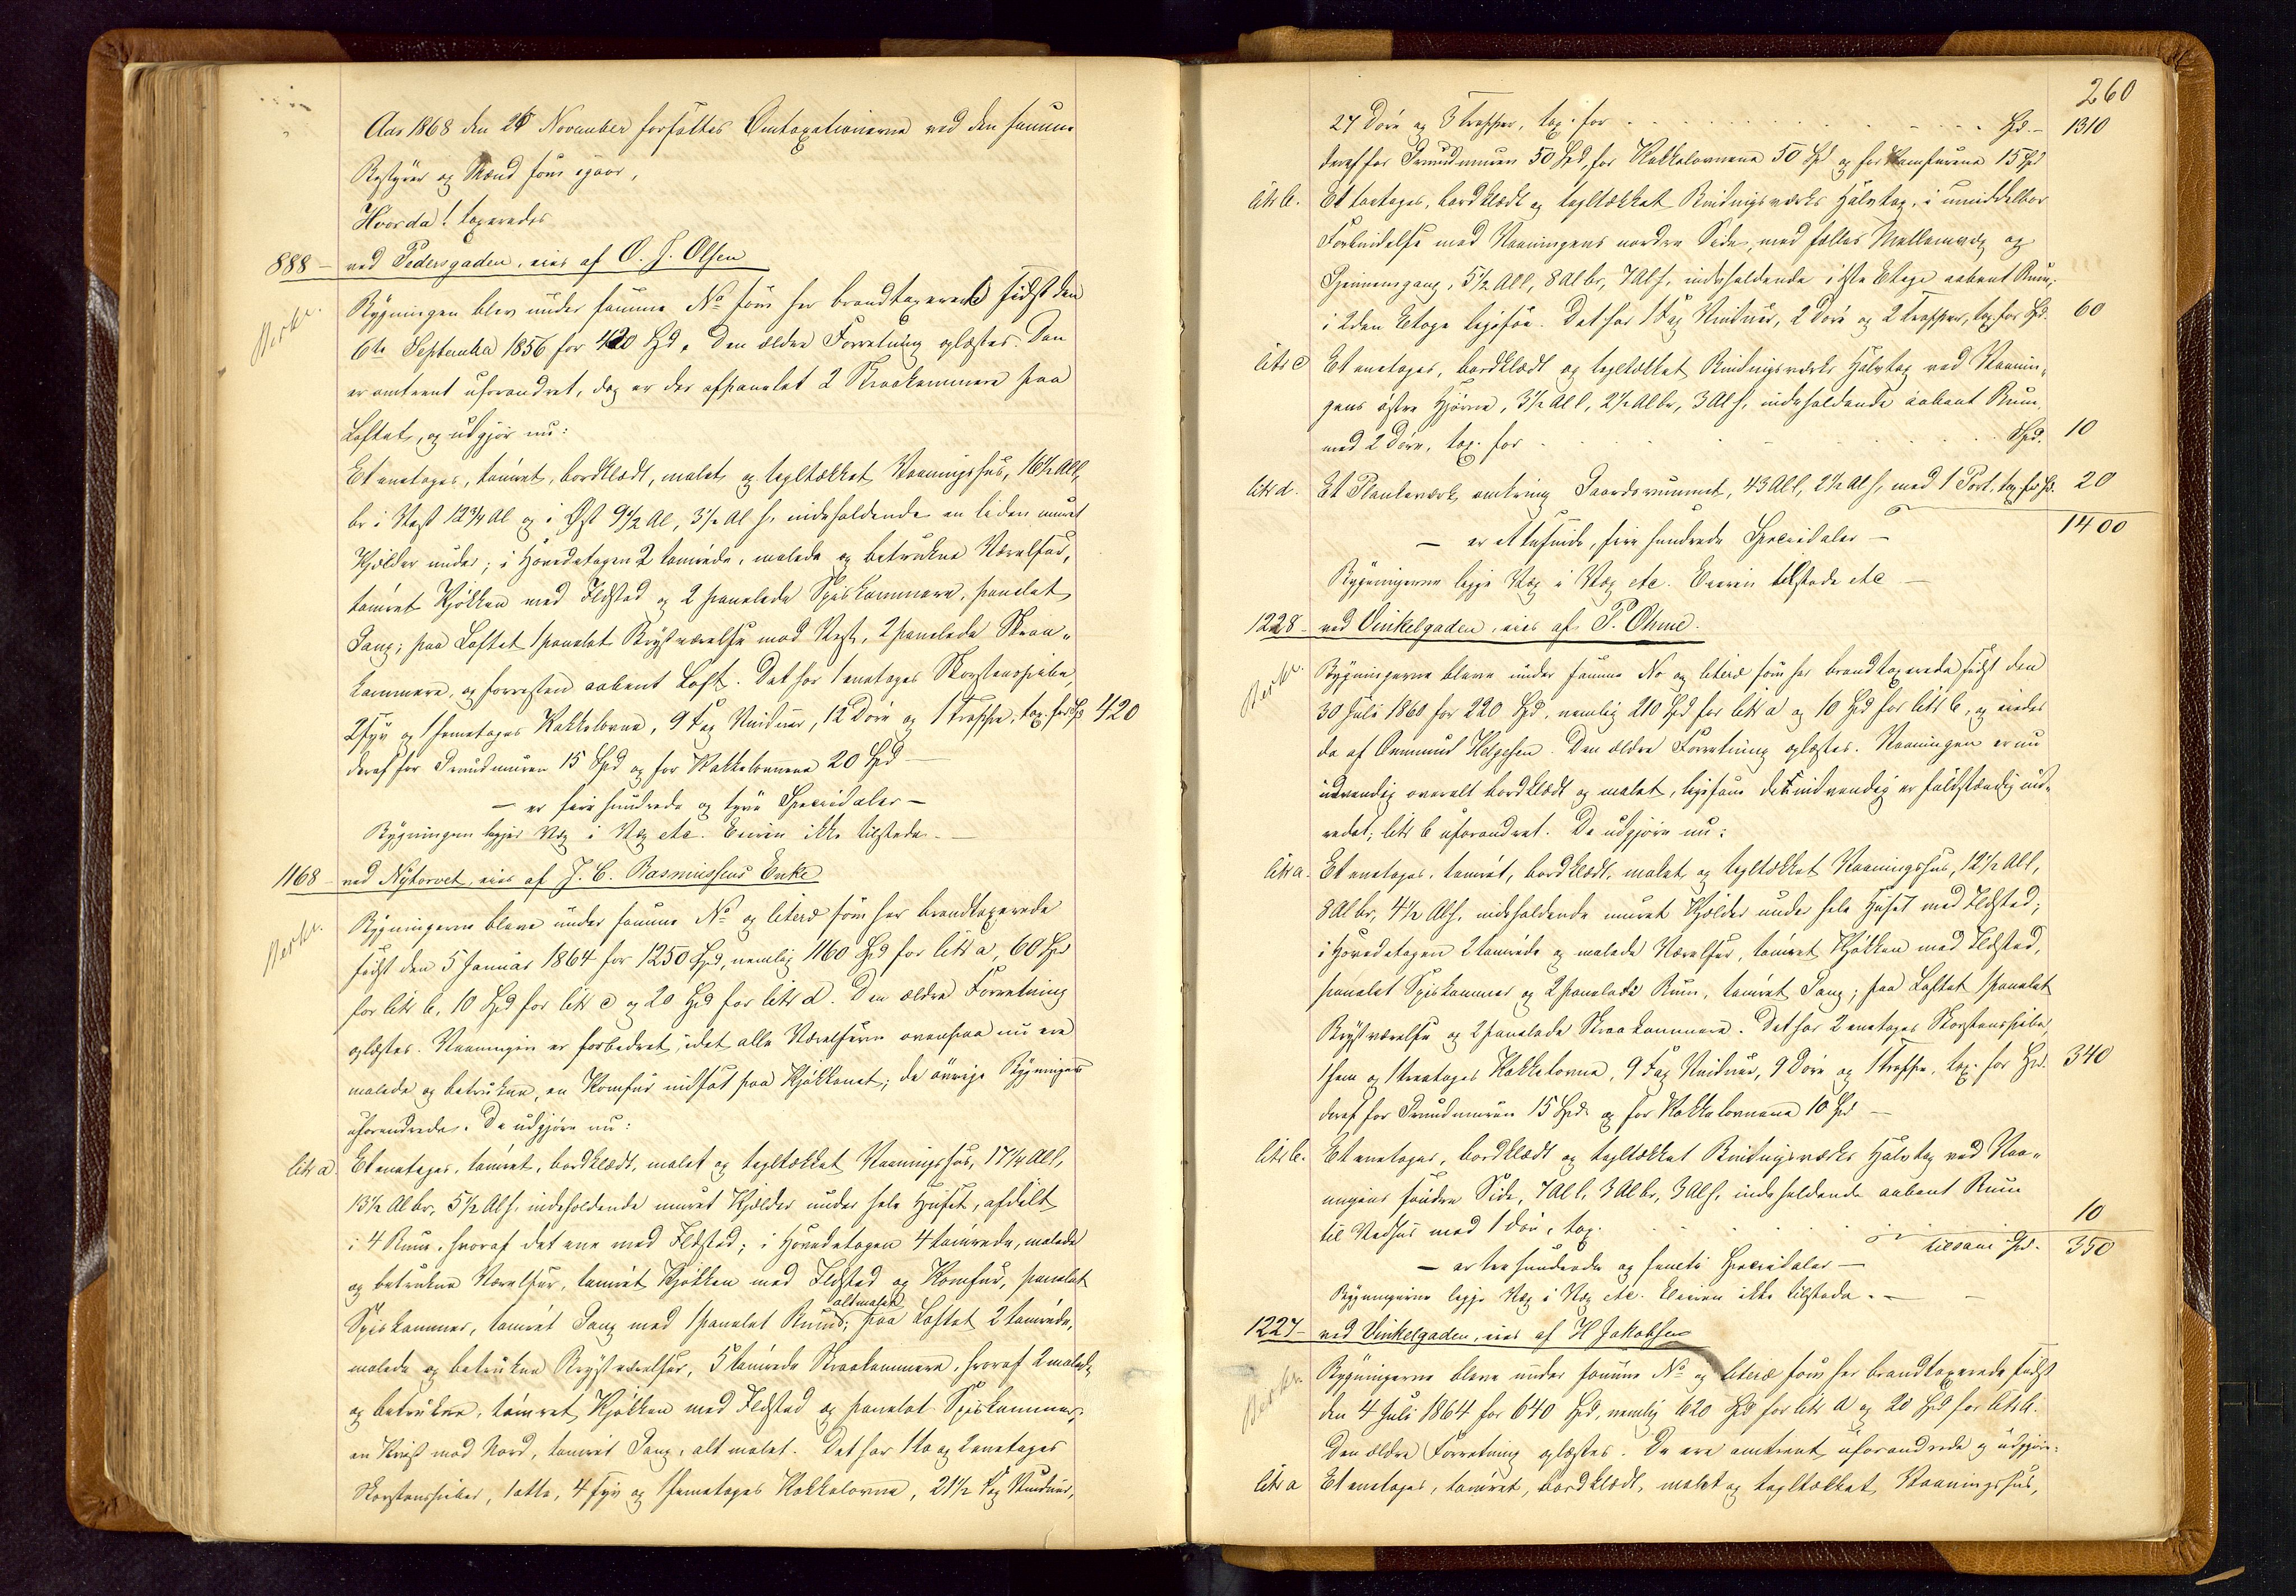 Aar 1868 den 26 November forsattes Omtaxationerne ved den samme
Bestyrer og Mænd som igaar,
Hvorda! taxeredes
888 – ved Pedersgaden, eies af O. J. Olsen
Bygningen blev under samme No som her brandtaxerede sidst den
6te September 1856 for 420 Spd. Den ældre Forretning oplæstes. Den
er omtrent uforandret, dog er der afpanelet 2 Skraakammere paa
Loftet, og udgjør nu:
Et enetages, tømret, bordklædt, malet og tegltækket Vaaningshus, 16½ Al l,
br i Vest 12¾ Al og i Øst 9½ Al, 3½ Al h, indeholdende en liden muret
Kjelder under; i Hovedetagen 2 tømrede, malede og betrukne Værelser,
tømret Kjøkken med Ildsted og 2 panelede Spiskammere, panelet
Gang; paa Loftet 1 panelet Kvistværelse mod Vest, 2 panelede Skraa„
kammere, og forresten aabent Loft. Det har 1 enetages Skorstenspibe
2 fyr og 1 femetages Kakkelovne, 9 Fag Vinduer, 12 Døre og 1 Trappe, tax. for Sp 420
deraf for Grundmuren 15 Spd og for Kakkelovnene 20 Spd
– er fire hundrede og tyve Speciedaler –
Bygningen ligger Væg i Væg etc. Eieren ikke tilstede. –
1168 – ved Nytorvet, eies af J. C. Rasmussens Enke
Bygningerne bleve under samme No og litera som her brandtaxerede
sidst den 5 Januar 1864 for 1250 Spd, nemlig 1160 Spd for litr a, 60 Spd
for litr b, 10 Spd for litr c og 20 Spd for litr d. Den ældre Forretning
oplæstes. Vaaningen er forbedret, idet alle Værelserne ovenpaa nu ere
malede og betrukne, en Komfur indsat paa Kjøkkenet; de øvrige Bygninger
uforandrede. De udgjøre nu:
litr a. Et enetages, tømret, bordklædt, malet og tegltækket Vaaningshus, 17¼ Al l,
13½ Al br, 5½ Al h, indeholdende muret Kjelder under hele Huset, afdelt
i 4 Rum, hvoraf det ene med Ildsted; i Hovedetagen 4 tømrede, malede
og betrukne Værelser, tømret Kjøkken med Ildsted og Komfur, panelet
altmalet
Spiskammer, tømret Gang med 1 panelet Rum; paa Loftet 2 tømrede,
malede og betrukne Kvistværelser, 5 tømrede Skraakammere, hvoraf 2 malede
og betrukne, tømret Kjøkken med Ildsted og panelet Spiskammer;
en Kvist mod Nord, tømret Gang, alt malet. Det har 1 to og 2 enetages
Skorstenspiber, 1 otte, 4 fyr og 1 femetages Kakkelovne, 21½ Fag Vinduer,
260
27 Døre og 3 Trapper, tax. for Spd. – 1310
deraf for Grundmuren 50 Spd, for Kakkelovnene 50 Spd og for Komfurene 15 Spd
litr b. Et toetages, bordklædt og tegltækket Bindingsværks Halvtag, i umiddelbar
Forbindelse med Vaaningens nordre Side, med fælles Mellemvæg og
Gjennemgang, 5½ Al l, 8 Al br, 7 Al h, indeholdende i 1ste Etage aabent Rum,
i 2den Etage ligesaa. Det har 1 Fag Vinduer, 2 Døre og 2 Trapper, tax. for Spd. 60
litr c Et enetages, bordklædt og tegltækket Bindingsværks Halvtag ved Vaanin„
gens østre Hjørne, 3½ Al l, 2½ Al br, 3 Al h, indeholdende aabent Rum,
med 2 Døre, tax. for Spd. 10
litr d. Et Plankeværk omkring Gaardsrummet, 43 Al l, 2½ Al h, med 1 Port, tax. for Sp. 20
1400
– er et tusinde, fire hundrede Speciedaler –
Bygningerne ligge Væg i Væg etc. Eieren tilstede etc –
1228 – ved Vinkelgaden, eies af P. Ohme.
Bygningerne bleve under samme No og litera som her brandtaxerede sidst den
30 Juli 1860 for 220 Spd, nemlig 210 Spd for litr a og 10 Spd for litr b, og eiedes
da af Ommund Helgesen. Den ældre Forretning oplæstes. Vaaningen er nu
udvendig overalt bordklædt og malet, ligesom det indvendig er fuldstændig ind„
redet; litr b uforandret. De udgjøre nu:
litr a. Et enetages, tømret, bordklædt, malet og tegltækket Vaaningshus, 12½ Al l,
8 Al br, 4½ Al h, indeholdende muret Kjelder under hele Huset med Ildsted;
i Hovedetagen 2 tømrede og malede Værelser, tømret Kjøkken med Ildsted,
panelet Spiskammer og 2 panelede Rum, tømret Gang; paa Loftet 1 panelet
Kvistværelse og 2 panelede Skraakammere. Det har 2 enetages Skorstenspiber,
1 fem og 1 treetages Kakkelovne, 9 Fag Vinduer, 9 Døre og 1 Trappe, tax. for Spd. 340
deraf for Grundmuren 15 Spd og for Kakkelovnene 10 Spd –
litr b. Et enetages, bordklædt og tegltækket Bindingsværks Halvtag ved Vaa„
ningens søndre Side, 7 Al l, 3 Al br, 3 Al h, indeholdende aabent Rum
til Vedhus med 1 Dør, tax. 10
tilsam Spd. 350
– er tre hundrede og femti Speciedaler –
Bygningerne ligge Væg i Væg etc. Eieren ikke tilstede. –
1227 – ved Vinkelgaden, eies af H Jakobsen
Bygningerne bleve under samme No og litera som her brandtaxerede sidst
den 4 Juli 1864 for 640 Spd, nemlig 620 Spd for litr a og 20 Spd for litr b.
Den ældre Forretning oplæstes. De ere omtrent uforandrede og udgjøre:
litr a Et enetages, tømret, bordklædt, malet og tegltækket Vaaningshus,